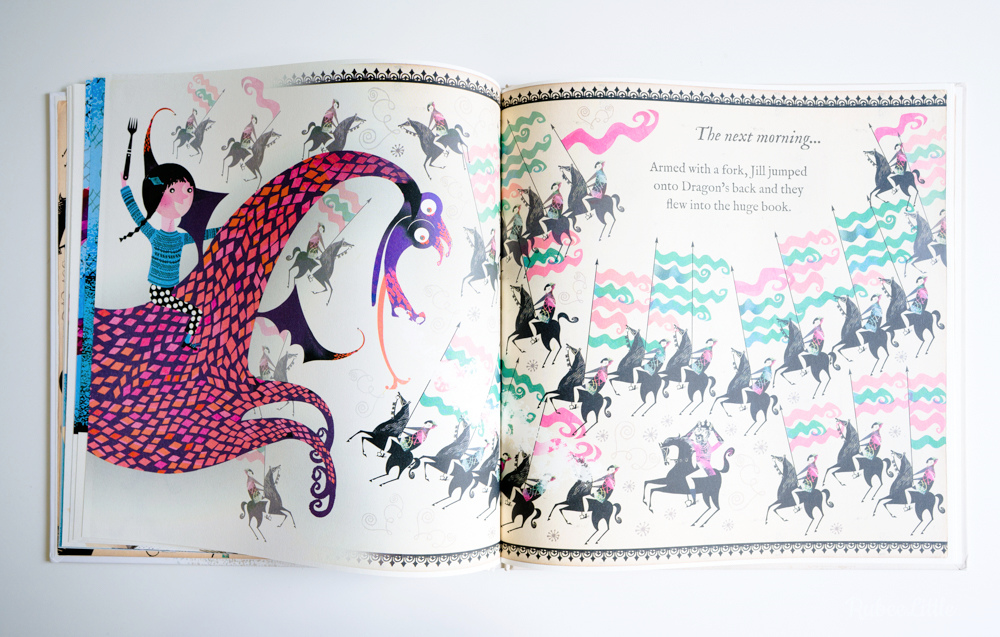 The next morning...
Armed with a fork, Jill jumped
onto Dragon's back and they
flew into the huge book.